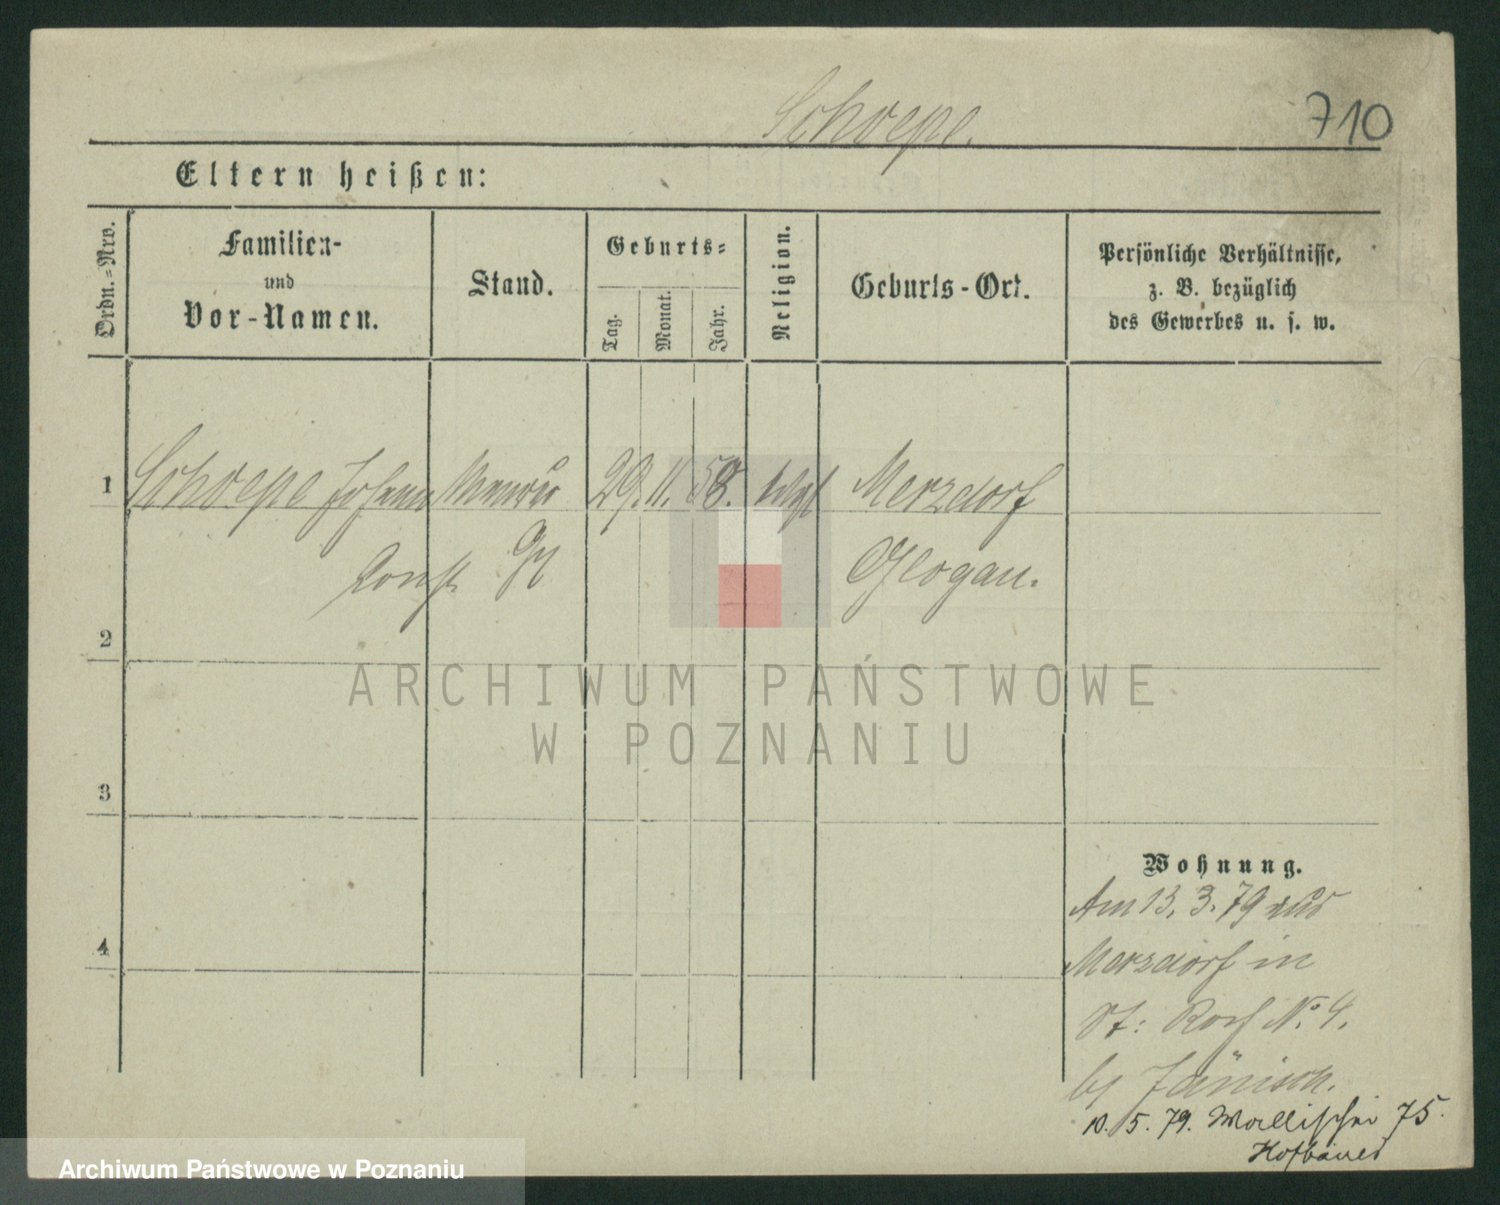 Schoepe.
710
Eltern heißen:
Ordn.=Nro.
Familien-
und
Vor-Namen.
Stand.
Geburts=
Tag.
Monat.
Jahr.
Religion.
Geburts-Ort.
Persönliche Verhältnisse,
z. B. bezüglich
des Gewerbes u. s. w.
1 Schoepe Johann Maurer 29. 11. 58. Merzdorf
Const. Glogau.
2
3
4
Wohnung.
Am 13. 3. 79 aus
Merzdorf in
St: Roch No 4.
by Jänisch.
10. 5. 79. Wallischei 75.
Hofbauer
ARCHIWUM PAŃSTWOWE
W POZNANIU
Archiwum Państwowe w Poznaniu